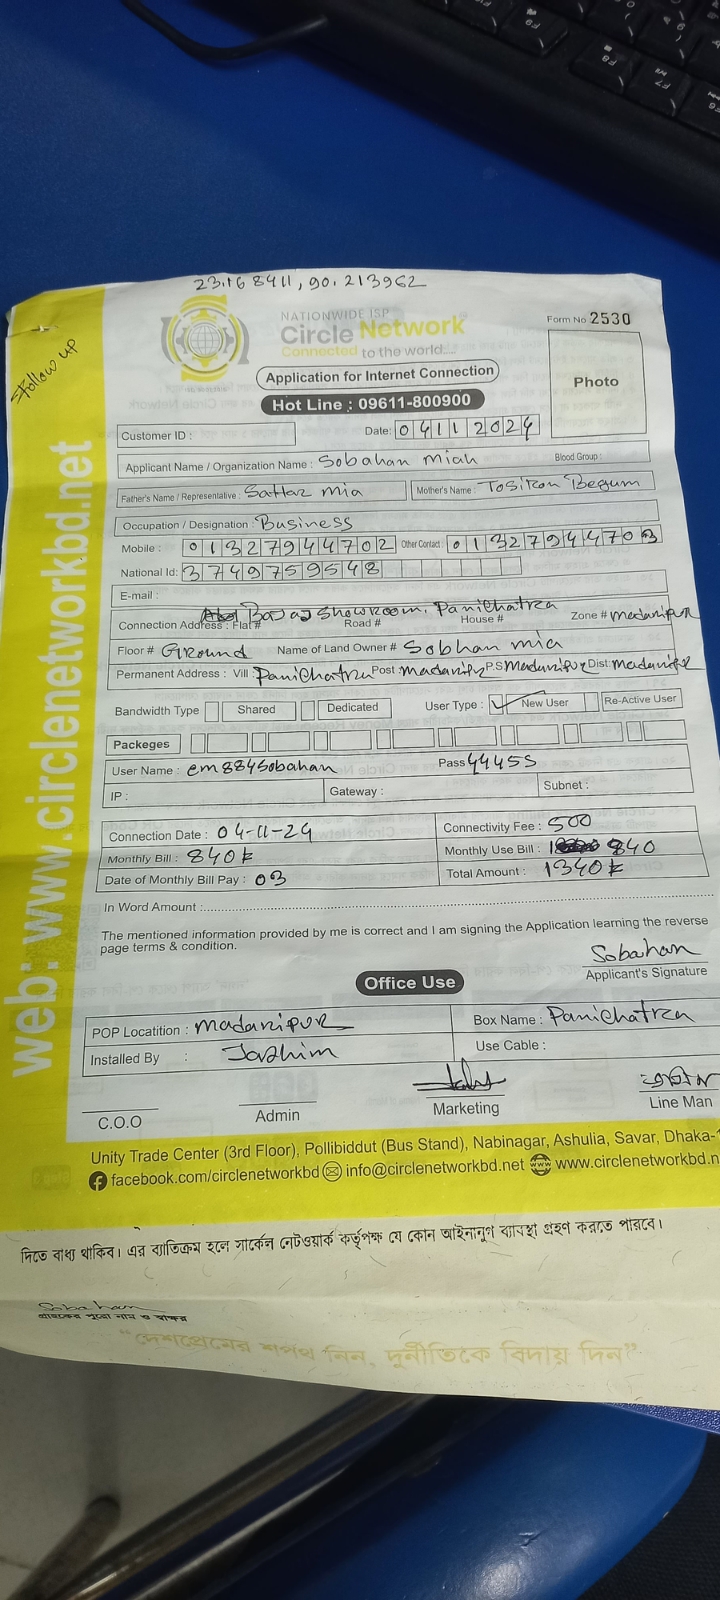 23.168411, 90.213962
Follow up
NATIONWIDE ISP
Circle Network
Connected to the world....
Form No 2530
Application for Internet Connection
Photo
Hot Line : 09611-800900
Customer ID :
Date: 04112024
Applicant Name / Organization Name : Sobahan Miah Blood Group :
Father's Name / Representative : Sattar mia Mother's Name : Tosiron Begum
Occupation / Designation : Business
Mobile : 01327944702 Other Contact : 01327944703
National Id: 3749759548
E-mail :
Bajaj Showroom, Panichatra
Connection Address : Flat # Road # House # Zone # madaripur
Floor # Ground Name of Land Owner # Sobhan mia
Permanent Address : Vill Panichatra Post madaripur P.S Madaripur Dist Madaripur
Bandwidth Type Shared Dedicated User Type : ✓ New User Re-Active User
Packeges
User Name : em884sobahan Pass 44455
IP : Gateway : Subnet :
Connection Date : 04-11-24 Connectivity Fee : 500
Monthly Bill : 840 Monthly Use Bill : 840
Date of Monthly Bill Pay : 03 Total Amount : 1340
In Word Amount :
The mentioned information provided by me is correct and I am signing the Application learning the reverse
page terms & condition.
Sobahan
Applicant's Signature
Office Use
POP Locatition : madaripur Box Name : Panichatra
Installed By : Jashim Use Cable :
C.O.O Admin Marketing Line Man
Unity Trade Center (3rd Floor), Pollibiddut (Bus Stand), Nabinagar, Ashulia, Savar, Dhaka-1
facebook.com/circlenetworkbd info@circlenetworkbd.net www.circlenetworkbd.n
web: www.circlenetworkbd.net
দিতে বাধ্য থাকিব। এর ব্যতিক্রম হলে সার্কেল নেটওয়ার্ক কর্তৃপক্ষ যে কোন আইনানুগ ব্যবস্থা গ্রহণ করতে পারবে।
Sobahan
গ্রাহকের পুরো নাম ও স্বাক্ষর
“দেশপ্রেমের শপথ নিন, দুর্নীতিকে বিদায় দিন”